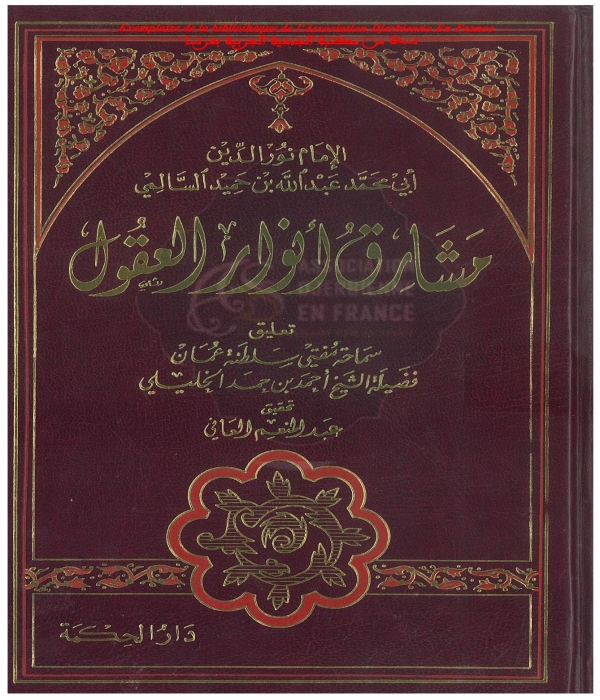 Exemplaire de la bibliothèque de l'Association Djerbienne en France
نسخة من مكتبة الجمعية الجربية بفرنسا
الإمام نور الدين
أبي محمد عبد الله بن حميد السالمي
مشارق أنوار العقول
ASSOCIATION
DJERBIENNE
EN FRANCE
تعليق
سماحة مفتي سلطنة عمان
فضيلة الشيخ أحمد بن حمد الخليلي
تحقيق
عبد المنعم العاني
دار الحكمة